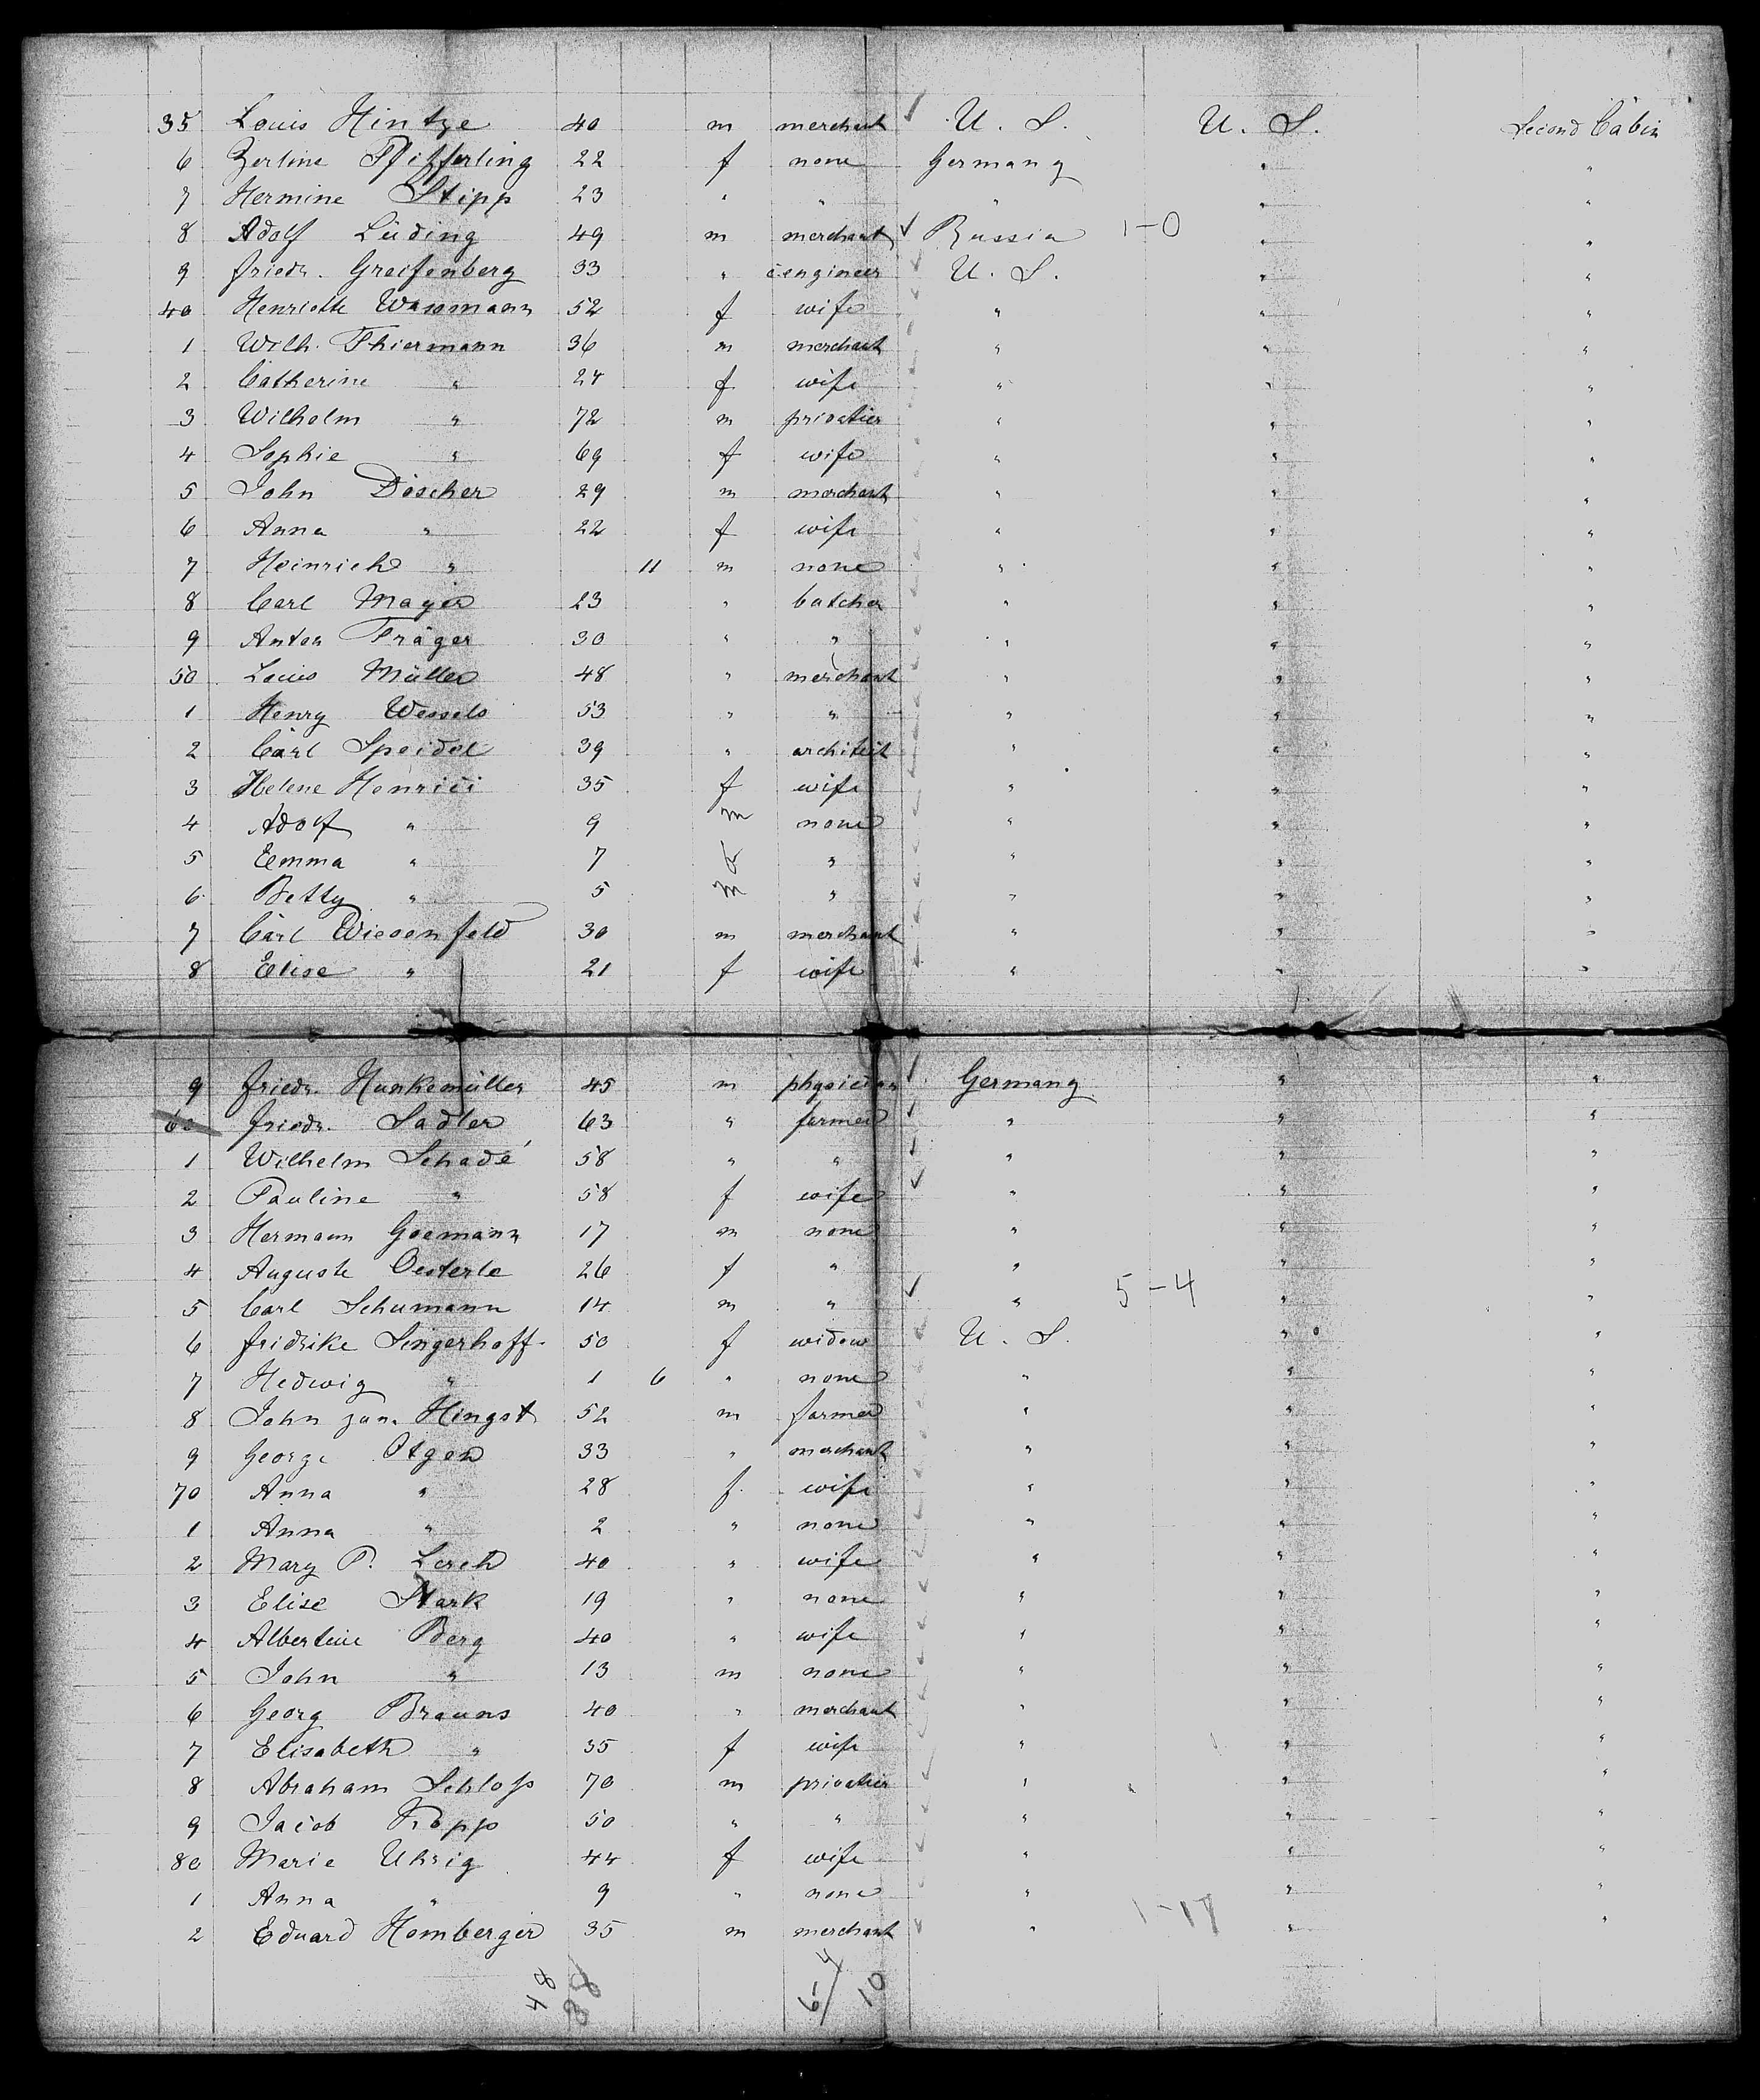 35 Louis Hintze 40 m merchant ✓ U. S. U. S. Second Cabin
6 Zerline Pfifferling 22 f none Germany " "
7 Hermine Stipp 23 " " " " "
8 Adolf Lüding 49 m merchant ✓ Russia 1-0 " "
9 friedr. Greifenberg 33 " c. engineer U. S. " "
40 Henriette Wassmann 52 f wife " " "
1 Wilh. Thiermann 36 m merchant " " "
2 Catherine " 24 f wife " " "
3 Wilhelm " 72 m privatier " " "
4 Sophie " 69 f wife " " "
5 John Döscher 29 m merchant " " "
6 Anna " 22 f wife " " "
7 Heinrich " 11 m none " " "
8 Carl Mayer 23 " butcher " " "
9 Anton Präger 30 " " " " "
50 Louis Müller 48 " merchant " " "
1 Henry Wessels 53 " " " " "
2 Carl Speidel 39 " architect " " "
3 Helene Henrici 35 f wife " " "
4 Adolf " 9 m none " " "
5 Emma " 7 f " " " "
6 Betty " 5 m " " " "
7 Carl Wiesenfeld 30 m merchant " " "
8 Elise " 21 f wife " " "
9 friedr. Hunkemüller 45 m physician ✓ Germany " "
60 friedr. Sadler 63 " farmer ✓ " " "
1 Wilhelm Schadé 58 " " ✓ " " "
2 Pauline " 58 f wife ✓ " " "
3 Hermann Goemann 17 m none " " "
4 Auguste Oesterle 26 f " " " "
5 Carl Schumann 14 m " ✓ " 5-4 " "
6 fridrike Singerhoff 50 f widow U. S. " "
7 Hedwig " 1 6 " none " " "
8 John jun. Hingst 52 m farmer " " "
9 George Otgen 33 " merchant " " "
70 Anna " 28 f wife " " "
1 Anna " 2 " none " " "
2 Mary P. Lerch 40 " wife " " "
3 Elise Stark 19 " none " " "
4 Albertine Berg 40 " wife " " "
5 John " 13 m none " " "
6 Georg Brauns 40 " merchant " " "
7 Elisabeth " 35 f wife " " "
8 Abraham Schloss 70 m privatier " " "
9 Jacob Kopp 50 " " " " "
80 Marie Uhrig 44 f wife " " "
1 Anna " 9 " none " " "
2 Eduard Homberger 35 m merchant " 1-17 " "
48 38 6-4 10